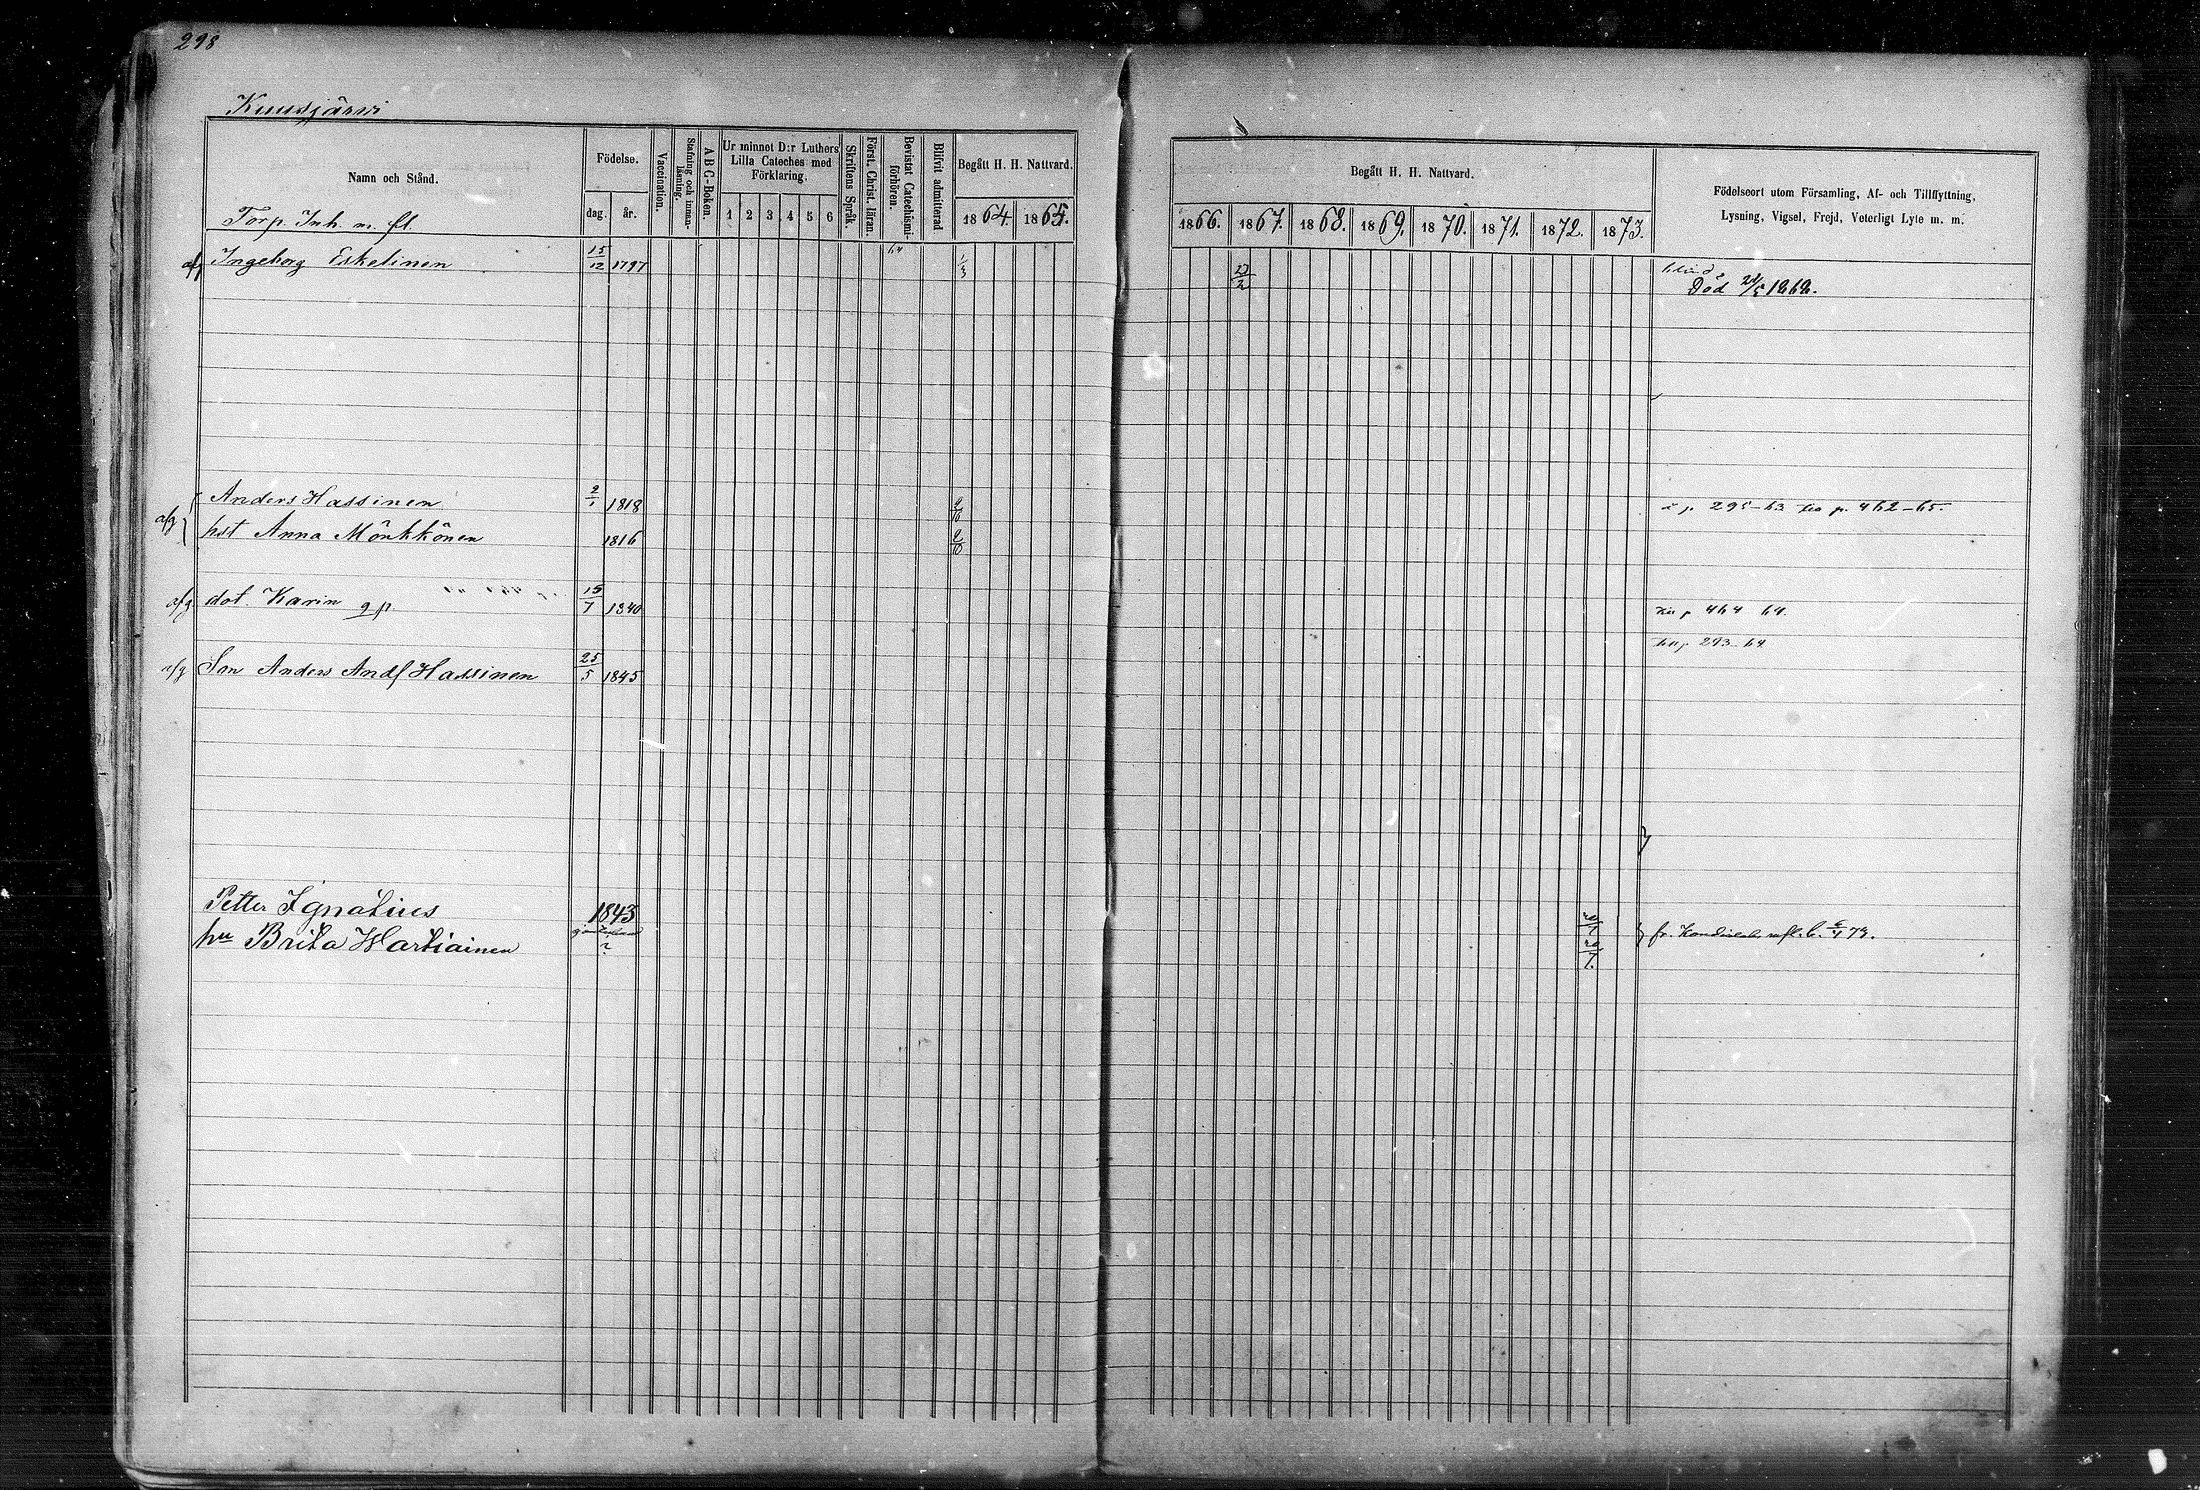 298
Kuusjärvi
Namn och Stånd.
Födelse.
dag. år.
Vaccination.
Stafning och innan-läsning.
A B C-Boken.
Ur minnet D:r Luthers Lilla Cateches med Förklaring.
1 2 3 4 5 6
Skriftens Språk.
Först. Christ. läran.
Bevistat Catechismi-förhören.
Blifvit admitterad
Begått H. H. Nattvard.
1864. 1865.
Begått H. H. Nattvard.
1866. 1867. 1868. 1869. 1870. 1871. 1872. 1873.
Födelseort utom Församling, Af- och Tillflyttning,
Lysning, Vigsel, Frejd, Veterligt Lyte m. m.
Torp. Inh. m. fl.
afg Ingeborg Eskelinen 15/12 1797 64 1/3 27/2 blind
Död 24/5 1868.
afg Anders Hassinen 2/1 1818 2/10 p. 295-63 p. 462-65.
hst Anna Mönkkönen 1816 2/10
afg dot. Karin g.p. 15/7 1840 p 464 64.
293-64
afg Son Anders And Hassinen 25/5 1845
Petter Ignatius 1843
hu Brita Wartiainen ? 20/7. fr. 73.